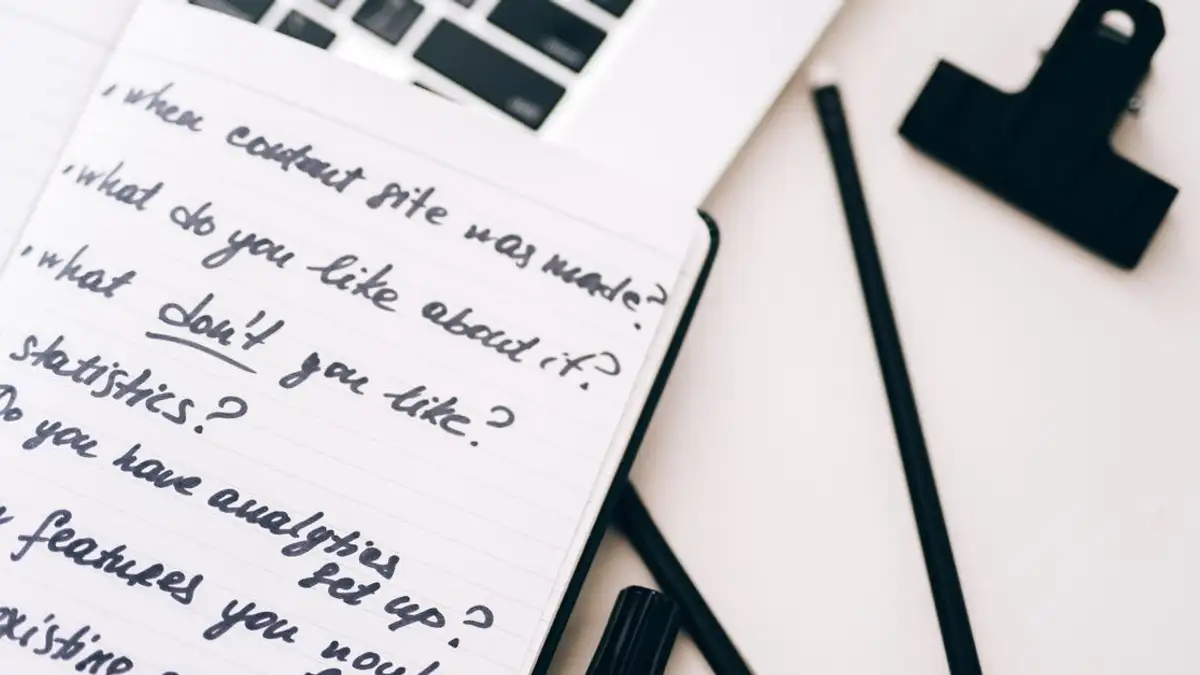 when content site was made?
what do you like about it?
what don't you like?
statistics?
Do you have analytics
set up?
features you
existing